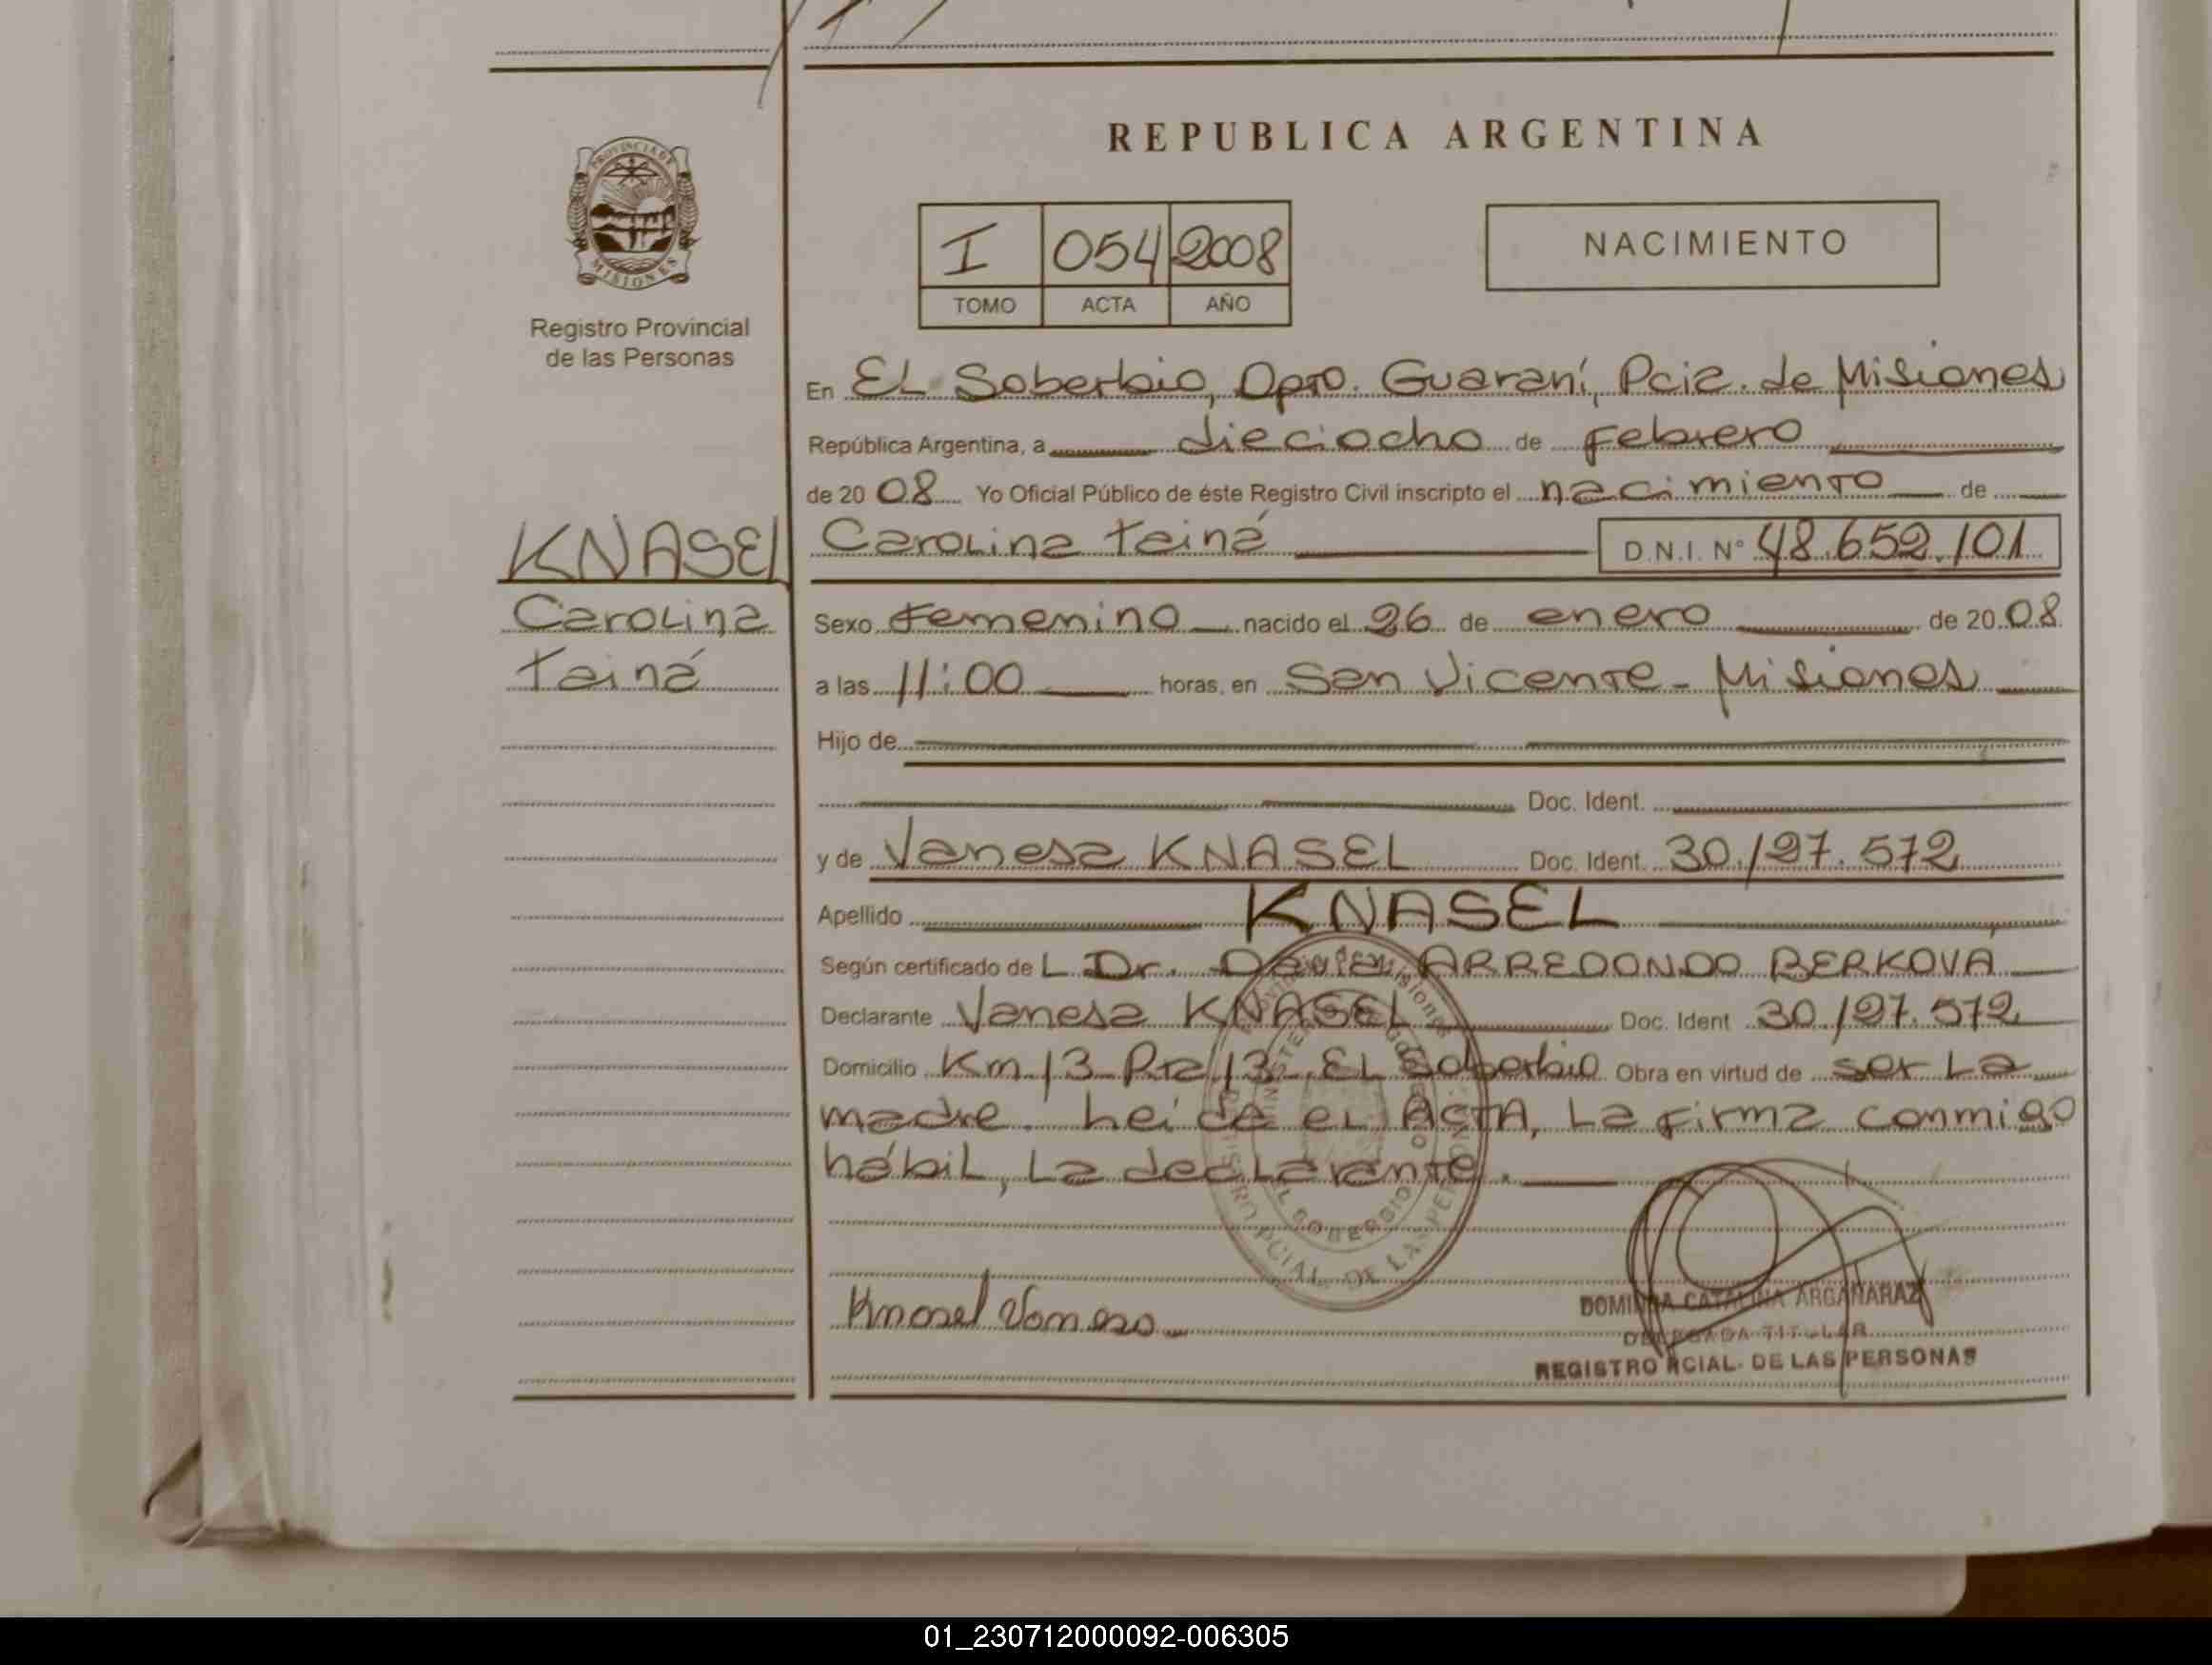 PROVINCIA DE
MISIONES
Registro Provincial
de las Personas
REPUBLICA ARGENTINA
I 054 2008
TOMO ACTA AÑO
NACIMIENTO
En EL Soberbio, Dpto. Guaraní, Pcia. de Misiones
República Argentina, a dieciocho de febrero
de 2008 Yo Oficial Público de éste Registro Civil inscripto el nacimiento de
KNASEL Carolina tainá D.N.I. N° 48.652.101
Carolina Sexo femenino nacido el 26 de enero de 2008
tainá a las 11:00 horas, en San Vicente - Misiones
Hijo de
Doc. Ident.
y de Vanesa KNASEL Doc. Ident. 30.127.572
Apellido KNASEL
Según certificado de L Dr. ARREDONDO BERKOVA
Declarante Vanesa KNASEL Doc. Ident 30.127.572
Domicilio Km 13 Rta 13 EL Soberbio Obra en virtud de ser La
madre. Leída el ACTA, La firma conmigo
hábil, La declarante.
EL SOBERBIO
PCIAL. DE LAS PER
Knasel Vanesa
CATALINA ARGAÑARAZ
DELEGADA TITULAR
REGISTRO PCIAL. DE LAS PERSONAS
01_230712000092-006305